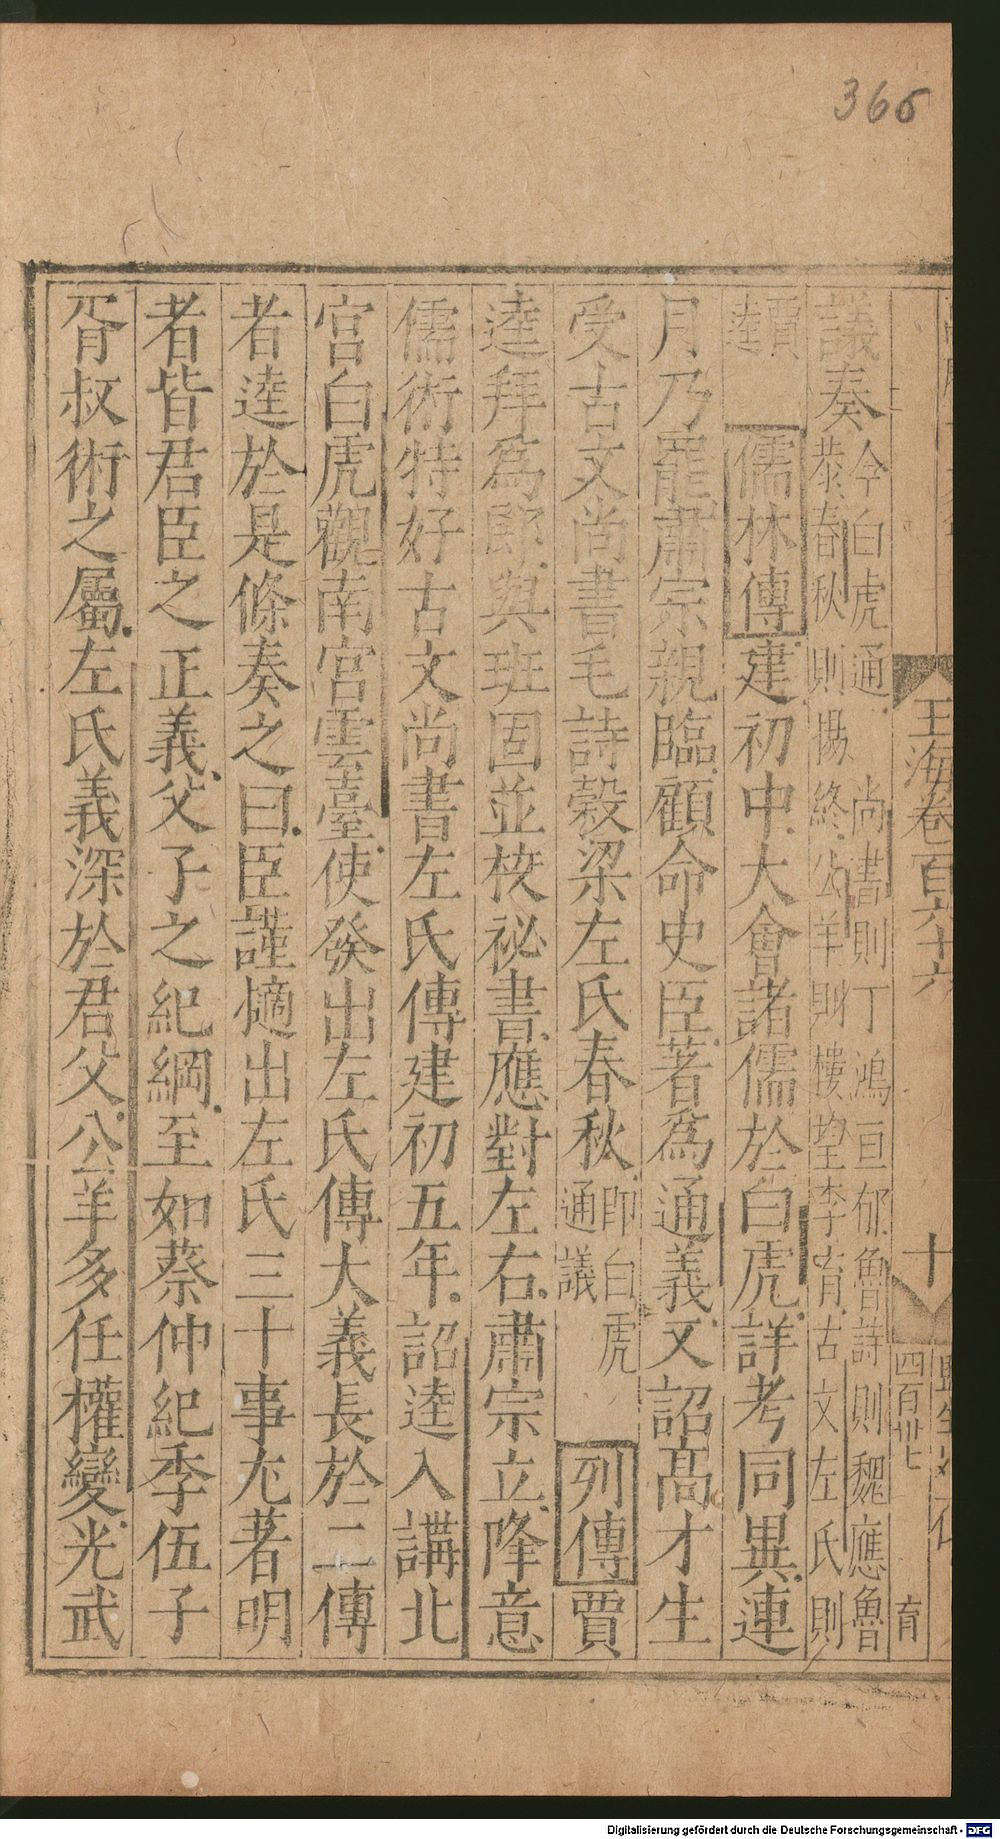 366
玉海卷百六十六
十
四百卅七
育
議奏今白虎通尚書則丁鴻亘郁魯詩則魏應魯
恭春秋則楊終公羊則樓望李育古文左氏則
賈逵儒林傳建初中大會諸儒於白虎詳考同異連
月乃罷肅宗親臨顧命史臣著爲通義又詔高才生
受古文尚書毛詩穀梁左氏春秋即白虎通議列傳賈
逵拜爲郎與班固並校祕書應對左右肅宗立降意
儒術特好古文尚書左氏傳建初五年詔逵入講北
宮白虎觀南宮雲臺使發出左氏傳大義長於二傳
者逵於是條奏之曰臣謹擿出左氏三十事尤著明
者皆君臣之正義父子之紀綱至如蔡仲紀季伍子
胥叔術之屬左氏義深於君父公羊多任權變光武
Digitalisierung gefördert durch die Deutsche Forschungsgemeinschaft - DFG